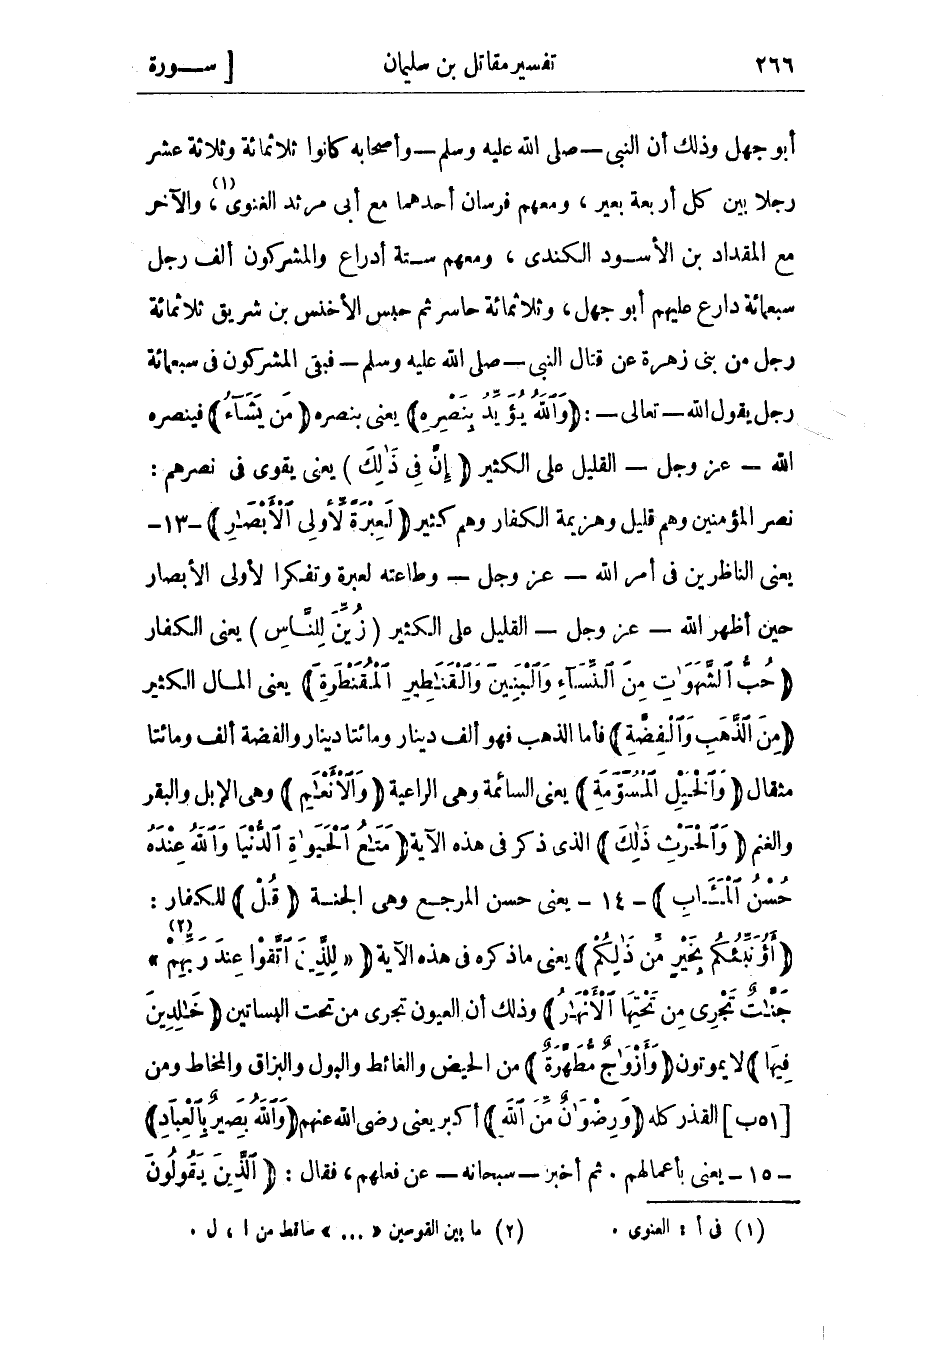 ٢٦٦ تفسير مقاتل بن سليمان [ ســـورة
أبو جهل وذلك أن النبى — صلى الله عليه وسلم — وأصحابه كانوا ثلاثمائة وثلاثة عشر
رجلا بين كل أربعة بعير ، ومعهم فرسان أحدهما مع أبى مرثد الغنوى(١) ، والآخر
مع المقداد بن الأسـود الكندى ، ومعهم ستـة أدراع والمشركون ألف رجل
سبعمائة دارع عليهم أبو جهل ، وثلاثمائة حاسر ثم حبس الأخنس بن شريق ثلاثمائة
رجل من بنى زهرة عن قتال النبى — صلى الله عليه وسلم — فبقى المشركون فى سبعمائة
رجل يقول الله — تعالى — : ﴿ وَٱللَّهُ يُؤَيِّدُ بِنَصْرِهِ ﴾ يعنى بنصره ﴿ مَن يَشَآءُ ﴾ فينصره
الله — عز وجل — القليل على الكثير ﴿ إِنَّ فِى ذَٰلِكَ ﴾ يعنى يقوى فى نصرهم :
نصر المؤمنين وهم قليل وهزيمة الكفار وهم كثير ﴿ لَعِبْرَةً لِّأُولِى ٱلْأَبْصَـٰرِ ﴾ -١٣-
يعنى الناظرين فى أمر الله — عز وجل — وطاعته لعبرة وتفكرا لأولى الأبصار
حين أظهر الله — عز وجل — القليل على الكثير ﴿ زُيِّنَ لِلنَّاسِ ﴾ يعنى الكفار
﴿ حُبُّ ٱلشَّهَوَٰتِ مِنَ ٱلنِّسَآءِ وَٱلْبَنِينَ وَٱلْقَنَـٰطِيرِ ٱلْمُقَنطَرَةِ ﴾ يعنى المـال الكثير
﴿ مِنَ ٱلذَّهَبِ وَٱلْفِضَّةِ ﴾ فأما الذهب فهو ألف دينار ومائتا دينار والفضة ألف ومائتا
مثقال ﴿ وَٱلْخَيْلِ ٱلْمُسَوَّمَةِ ﴾ يعنى السائمة وهى الراعية ﴿ وَٱلْأَنْعَـٰمِ ﴾ وهى الإبل والبقر
والغنم ﴿ وَٱلْحَرْثِ ذَٰلِكَ ﴾ الذى ذكر فى هذه الآية ﴿ مَتَـٰعُ ٱلْحَيَوٰةِ ٱلدُّنْيَا وَٱللَّهُ عِندَهُ
حُسْنُ ٱلْمَـَٔابِ ﴾ - ١٤ - يعنى حسن المرجـع وهى الجنـة ﴿ قُلْ ﴾ للكفار :
﴿ أَؤُنَبِّئُكُم بِخَيْرٍ مِّن ذَٰلِكُمْ ﴾ يعنى ماذكره فى هذه الآية ﴿ « لِلَّذِينَ ٱتَّقَوْا عِندَ رَبِّهِمْ »(٢)
جَنَّـٰتٌ تَجْرِى مِن تَحْتِهَا ٱلْأَنْهَـٰرُ ﴾ وذلك أن العيون تجرى من تحت البساتين ﴿ خَـٰلِدِينَ
فِيهَا ﴾ لا يموتون ﴿ وَأَزْوَٰجٌ مُّطَهَّرَةٌ ﴾ من الحيض والغائط والبول والبزاق والمخاط ومن
[ ٥١ب ] القذر كله ﴿ وَرِضْوَٰنٌ مِّنَ ٱللَّهِ ﴾ أكبر يعنى رضى الله عنهم ﴿ وَٱللَّهُ بَصِيرٌ بِٱلْعِبَادِ ﴾
- ١٥ - يعنى بأعمالهم . ثم أخبر — سبحانه — عن فعلهم ، فقال : ﴿ ٱلَّذِينَ يَقُولُونَ
(١) فى أ : العنوى . (٢) ما بين القوسين « ... » ساقط من ا ، ل .